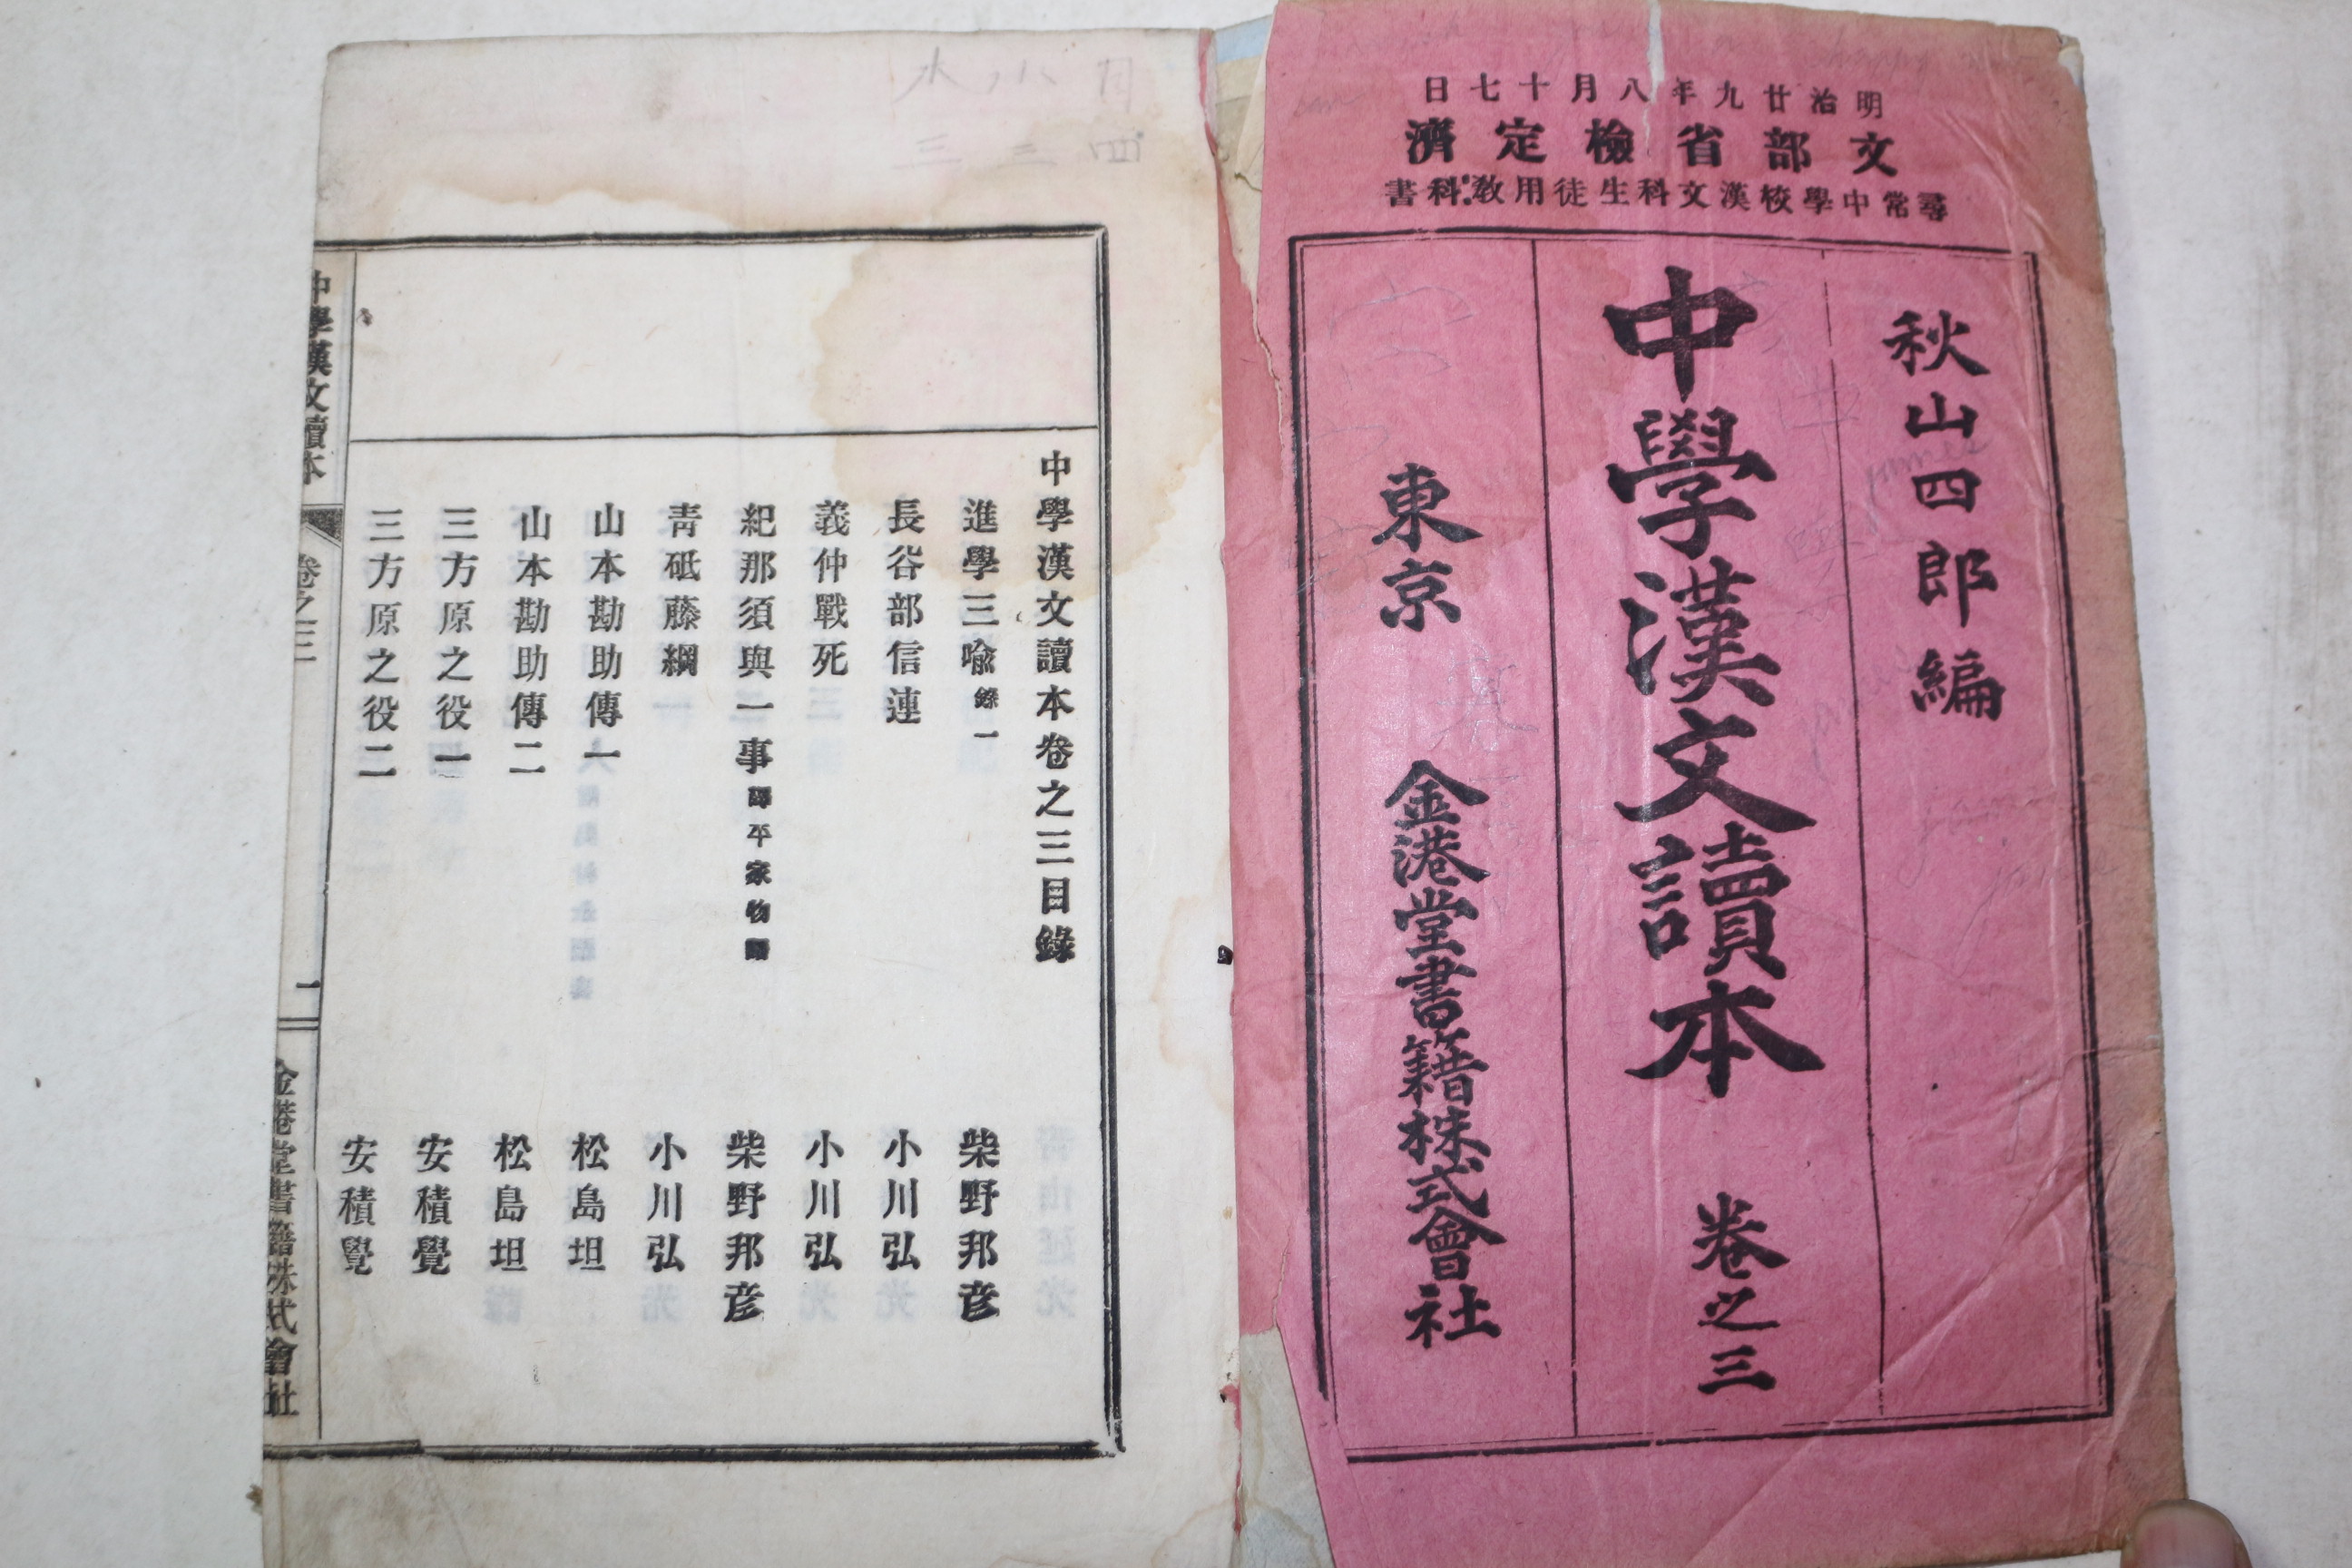 明治廿九年八月十七日
文部省檢定濟
尋常中學校漢文科生徒用敎科書
秋山四郎編
中學漢文讀本 卷之三
東京 金港堂書籍株式會社
月 水
四 三 三
中學漢文讀本卷之三目錄
進學三喩 錄一 柴野邦彦
長谷部信連 小川弘
義仲戰死 小川弘
紀那須與一事 譯平家物語 柴野邦彦
靑砥藤綱 小川弘
山本勘助傳一 松島坦
山本勘助傳二 松島坦
三方原之役一 安積覺
三方原之役二 安積覺
中學漢文讀本 卷之三 一 金港堂書籍株式會社